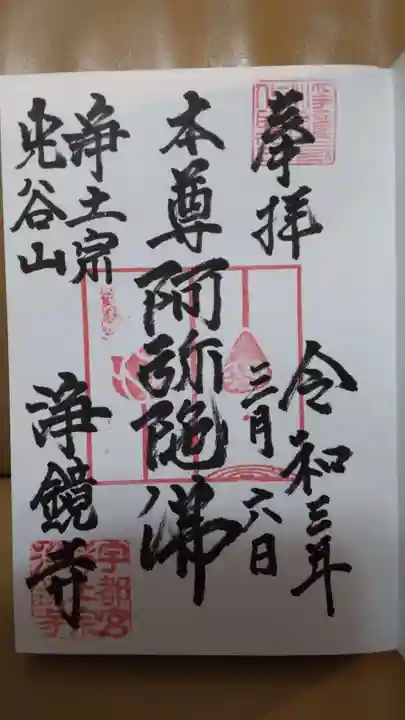 奉拝
令和三年
三月六日
本尊阿弥陀佛
浄土宗
光谷山
浄鏡寺
宇都宮